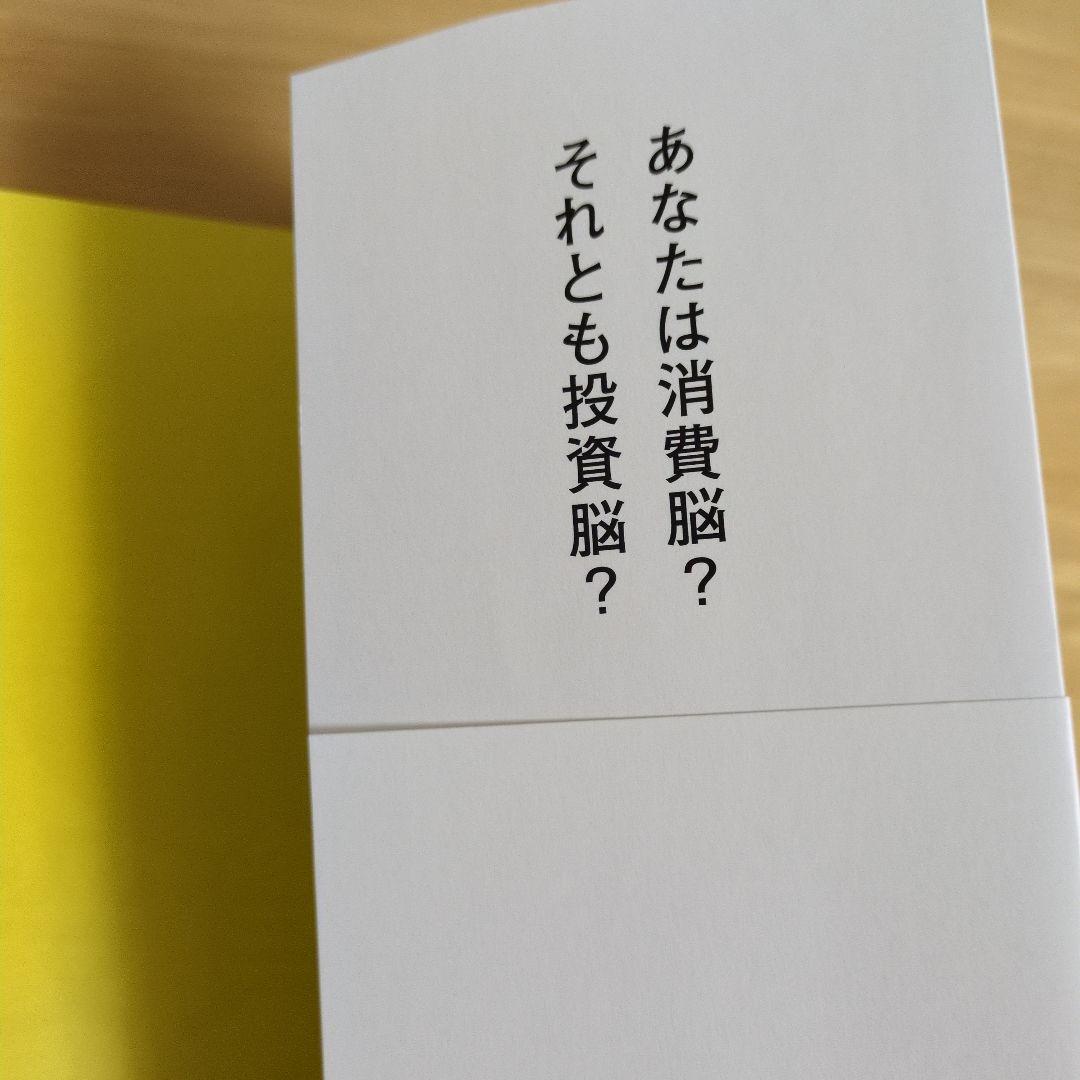 あなたは消費脳？
それとも投資脳？